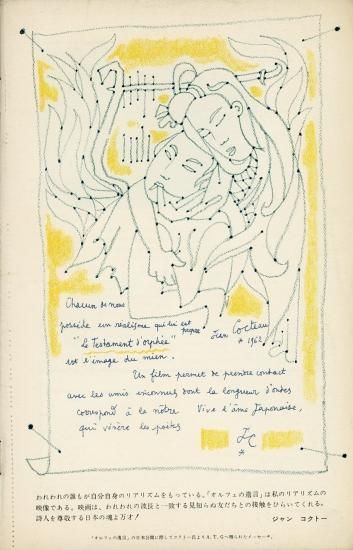 Chacun de nous
possède un réalisme qui lui est propre
"Le Testament d'orphée"
est l'image du mien.
Jean Cocteau
* 1962
Un film permet de prendre contact
avec les amis inconnus dont la longueur d'ondes
correspond à la nôtre Vive l'âme Japonaise,
qui vénère les poètes
JC
*
われわれの誰もが自分自身のリアリズムをもっている。「オルフェの遺言」は私のリアリズムの
映像である。映画は、われわれの波長と一致する見知らぬ友だちとの接触をひらいてくれる。
詩人を尊敬する日本の魂よ万才!
ジャン コクトー
「オルフェの遺言」の日本公開に際してコクトー氏よりA.T.Gへ贈られたメッセージ。